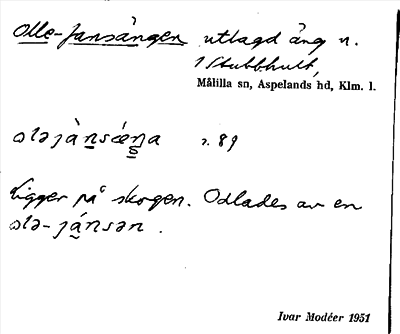 Olle-Jansängen utlagd äng n.
i Stubbhult,
Målilla sn, Aspelands hd, Klm. l.
s. 89
Ligger på skogen. Odlades av en
Ivar Modéer 1951